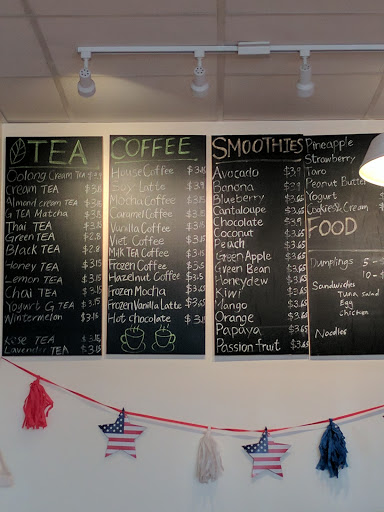 TEA
Oolong Cream Tea
Cream TEA
Almond cream TEA
G TEA Matcha
Thai TEA
Green TEA
Black TEA
Honey TEA
Lemon TEA
Chai TEA
Yogurt G TEA $3.15
Wintermelon
Rose TEA
Lavender TEA
COFFEE
House Coffee
Latte
Mocha Coffee
Caramel Coffee
Vanilla Coffee
Viet Coffee
Milk TEA Coffee
Frozen Coffee
Hazelnut Coffee
Frozen Mocha
Frozen Vanilla Latte
Hot chocolate
SMOOTHIES
Avocado
Banana
Blueberry $3.65
Cantaloupe
Chocolate
Coconut
Peach $3.65
Green Apple $3.65
Green Bean $3.65
Honeydew $3.65
Kiwi $3.65
Mango $3.65
Orange $3.65
Papaya $3.65
Passion fruit $3.65
Pineapple
Strawberry
Taro
Peanut Butter
Yogurt
Cookies & Cream
FOOD
Dumplings 5 -
10 -
Sandwiches
Tuna salad
Egg
Chicken
Noodles